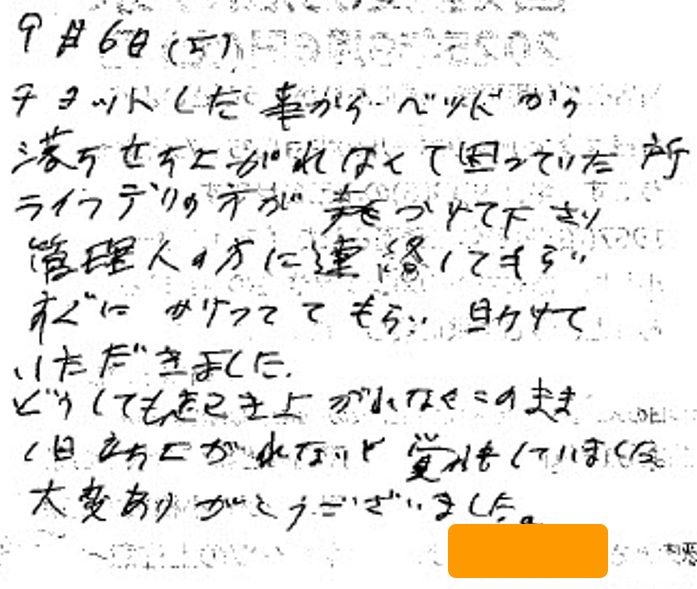 9月6日(土)
チョットした事からベッドから
落ち立ち上がれなくて困っていた所
ライフデリの方が見つけて下さり
管理人の方に連絡してもらい
すぐに かけつけて もらい 助けて
いただきました.
どうしても起き上がれなくこのまま
1日立ち上がれないと覚悟していました
大変ありがとうございました。